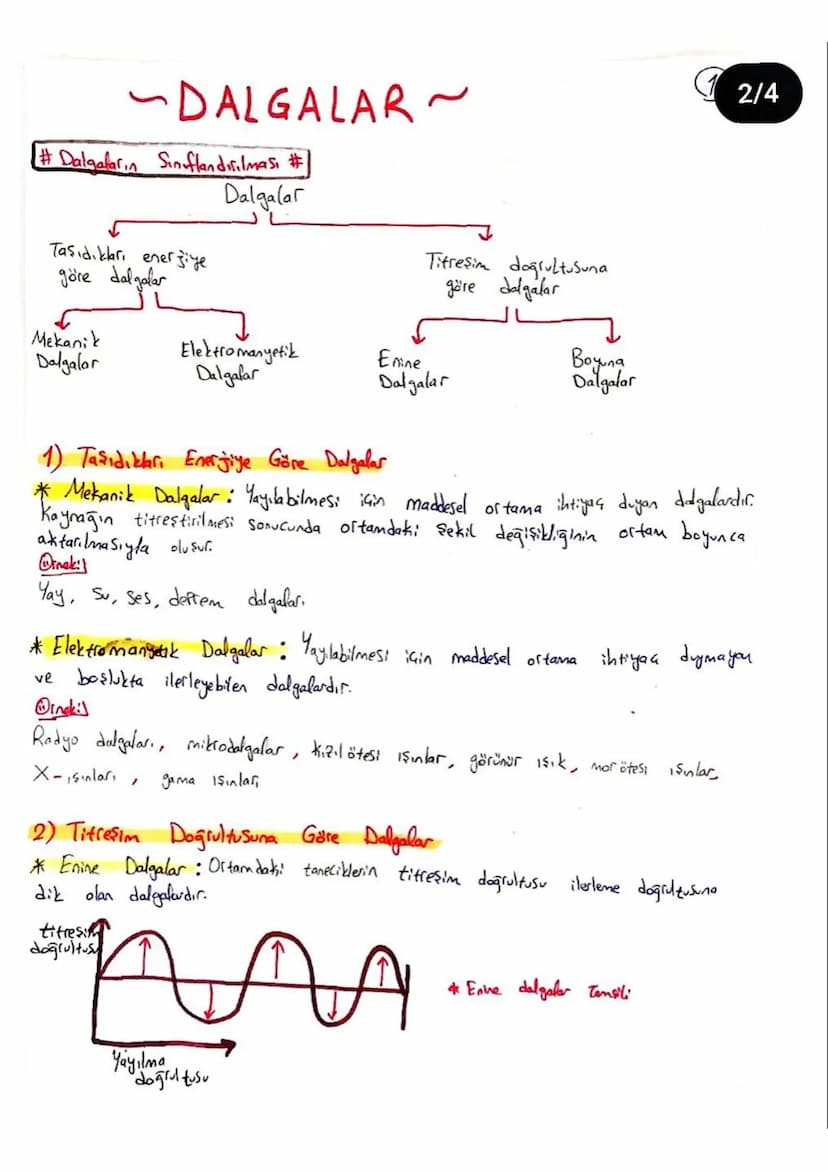 1
2/4
~DALGALAR~
# Dalgaların Sınıflandırılması #
Dalgalar
Taşıdıkları enerjiye
göre dalgalar
Titreşim doğrultusuna
göre dalgalar
Mekanik
Dalgalar
Elektromanyetik
Dalgalar
Enine
Dalgalar
Boyuna
Dalgalar
1) Taşıdıkları Enerjiye Göre Dalgalar
* Mekanik Dalgalar : Yayılabilmesi için maddesel ortama ihtiyaç duyan dalgalardır.
Kaynağın titreştirilmesi sonucunda ortamdaki şekil değişikliğinin ortam boyunca
aktarılmasıyla oluşur.
Örnek:
Yay, su, ses, deprem dalgaları
* Elektromanyetik Dalgalar : Yayılabilmesi için maddesel ortama ihtiyaç duymayan
ve boşlukta ilerleyebilen dalgalardır.
Örnek:
Radyo dalgaları, mikrodalgalar, kızıl ötesi ışınlar, görünür ışık, mor ötesi ışınlar,
X-ışınları, gama ışınları
2) Titreşim Doğrultusuna Göre Dalgalar
* Enine Dalgalar : Ortamdaki taneciklerin titreşim doğrultusu ilerleme doğrultusuna
dik olan dalgalardır.
titreşim
doğrultusu
* Enine dalgalar Temsili
Yayılma
doğrultusu